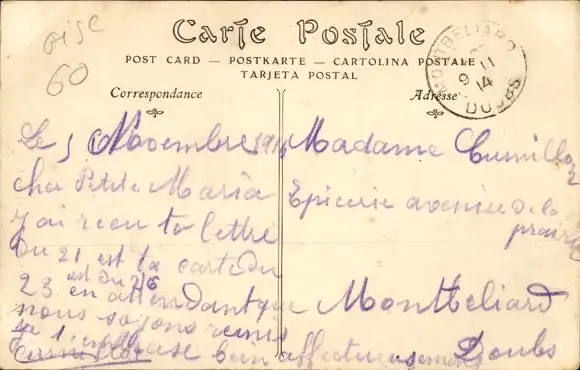 oise
60
Carte Postale
POST CARD — POSTKARTE — CARTOLINA POSTALE
TARJETA POSTAL
MONTBELIARD
9 11
14
DOUBS
Correspondance
Adresse
Le 5 Novembre 1914
cher Petite Maria
J'ai recu ta lettre
Du 21 est ta carte du
23 est Du 26 en attendant que
nous soyons reunis
Je t'embrasse bien affectueusement
Madame
Epicerie avenue de la
prairie
Montbeliard
Doubs